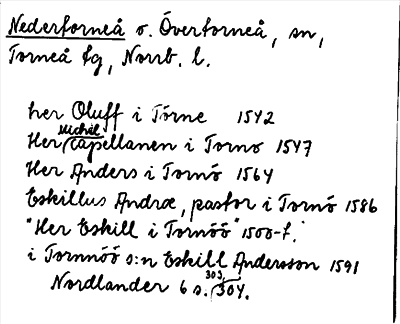 Nedertorneå o. Övertorneå, sn,
Torneå tg, Norrb. l.
her Oluff i Törne 1542
Her Michil Capellanen i Torno 1547
Her Anders i Tornö 1564
Eskillus Andræ, pastor i Tornö 1586
"Her Eskill i Tornöö" 1500-t.
i Tornnöö s:n Eskill Andersson 1591
Nordlander 6 s. 303, 304.